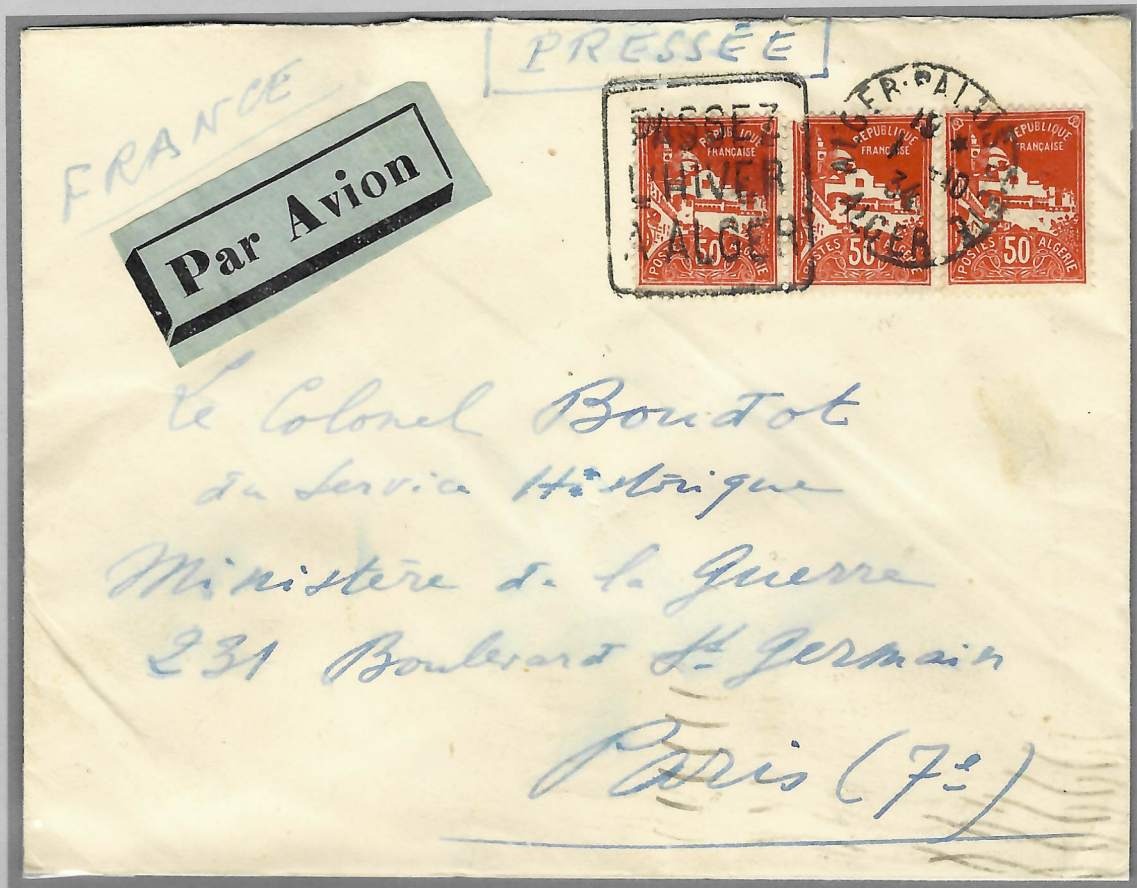 PRESSÉE
FRANCE
Par Avion
PASSEZ
L'HIVER
A ALGER
ALGER
ALGER
RÉPUBLIQUE
FRANÇAISE
50
POSTES ALGÉRIE
RÉPUBLIQUE
FRANÇAISE
50
POSTES ALGÉRIE
RÉPUBLIQUE
FRANÇAISE
50
POSTES ALGÉRIE
Le Colonel Boudot
du Service Historique
Ministère de la Guerre
231 Boulevard St Germain
Paris (7e)